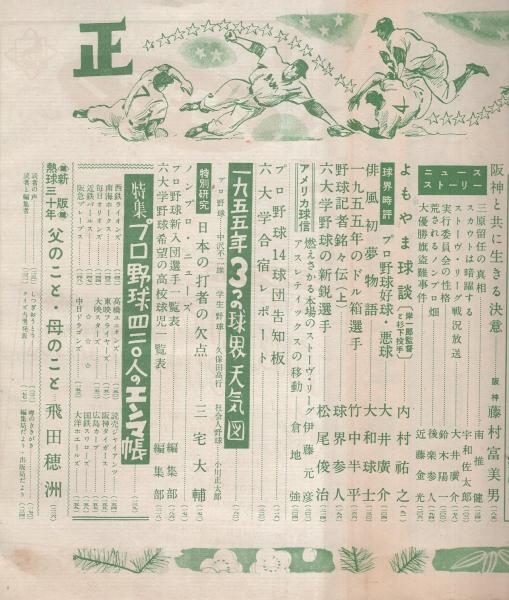 正
阪神と共に生きる決意 阪神 藤村富美男
ニュースストーリー
三原留任の真相 南推健
スカウトは暗躍する 宇和佐太郎
ストーヴ・リーグ戦況放送 大井廣介
実行委員会の性格 後楽参人
荒されるノンプロ畑 鈴木陽一
大優勝旗盗難事件 近藤金光
よもやま球談 岸一郎監督と杉下投手 内村祐之
球界時評 プロ野球好球・悪球 大井廣介
俳風初夢物語 大和球士
一九五五年のドル箱選手 竹中半平
野球記者銘々伝(上) 球界参人
六大学野球の新鋭選手 松尾俊治
アメリカ球信
燃えさかる本場のストーヴ・リーグ 伊藤元彦
アスレティックスの移動 倉地強
プロ野球14球団告知板
六大学合宿レポート
一九五五年3つの球界天気図
プロ野球・中沢不二雄 学生野球・久保田高行 社会人野球・小川正太郎
特別研究 日本の打者の欠点 三宅大輔
ノンプロ・ニューズ
プロ野球新入団選手一覧表 編集部
六大学野球希望の高校球児一覧表 編集部
特集 プロ野球四二〇人のエンマ帳
西鉄ライオンズ 高橋ユニオンズ 読売ジャイアンツ
南海ホークス 東映フライヤーズ 阪神タイガース
毎日オリオンズ 大映スターズ 広島カープ
近鉄パールス ☆ ☆ 国鉄スワローズ
阪急ブレーブス 中日ドラゴンズ 大洋ホエールズ
新版 熱球三十年 父のこと・母のこと 飛田穂洲
読者の声
読者と編集者
しつぎおうとう
クイズ当選発表
噂のささやき
編集局だより・出版局だより